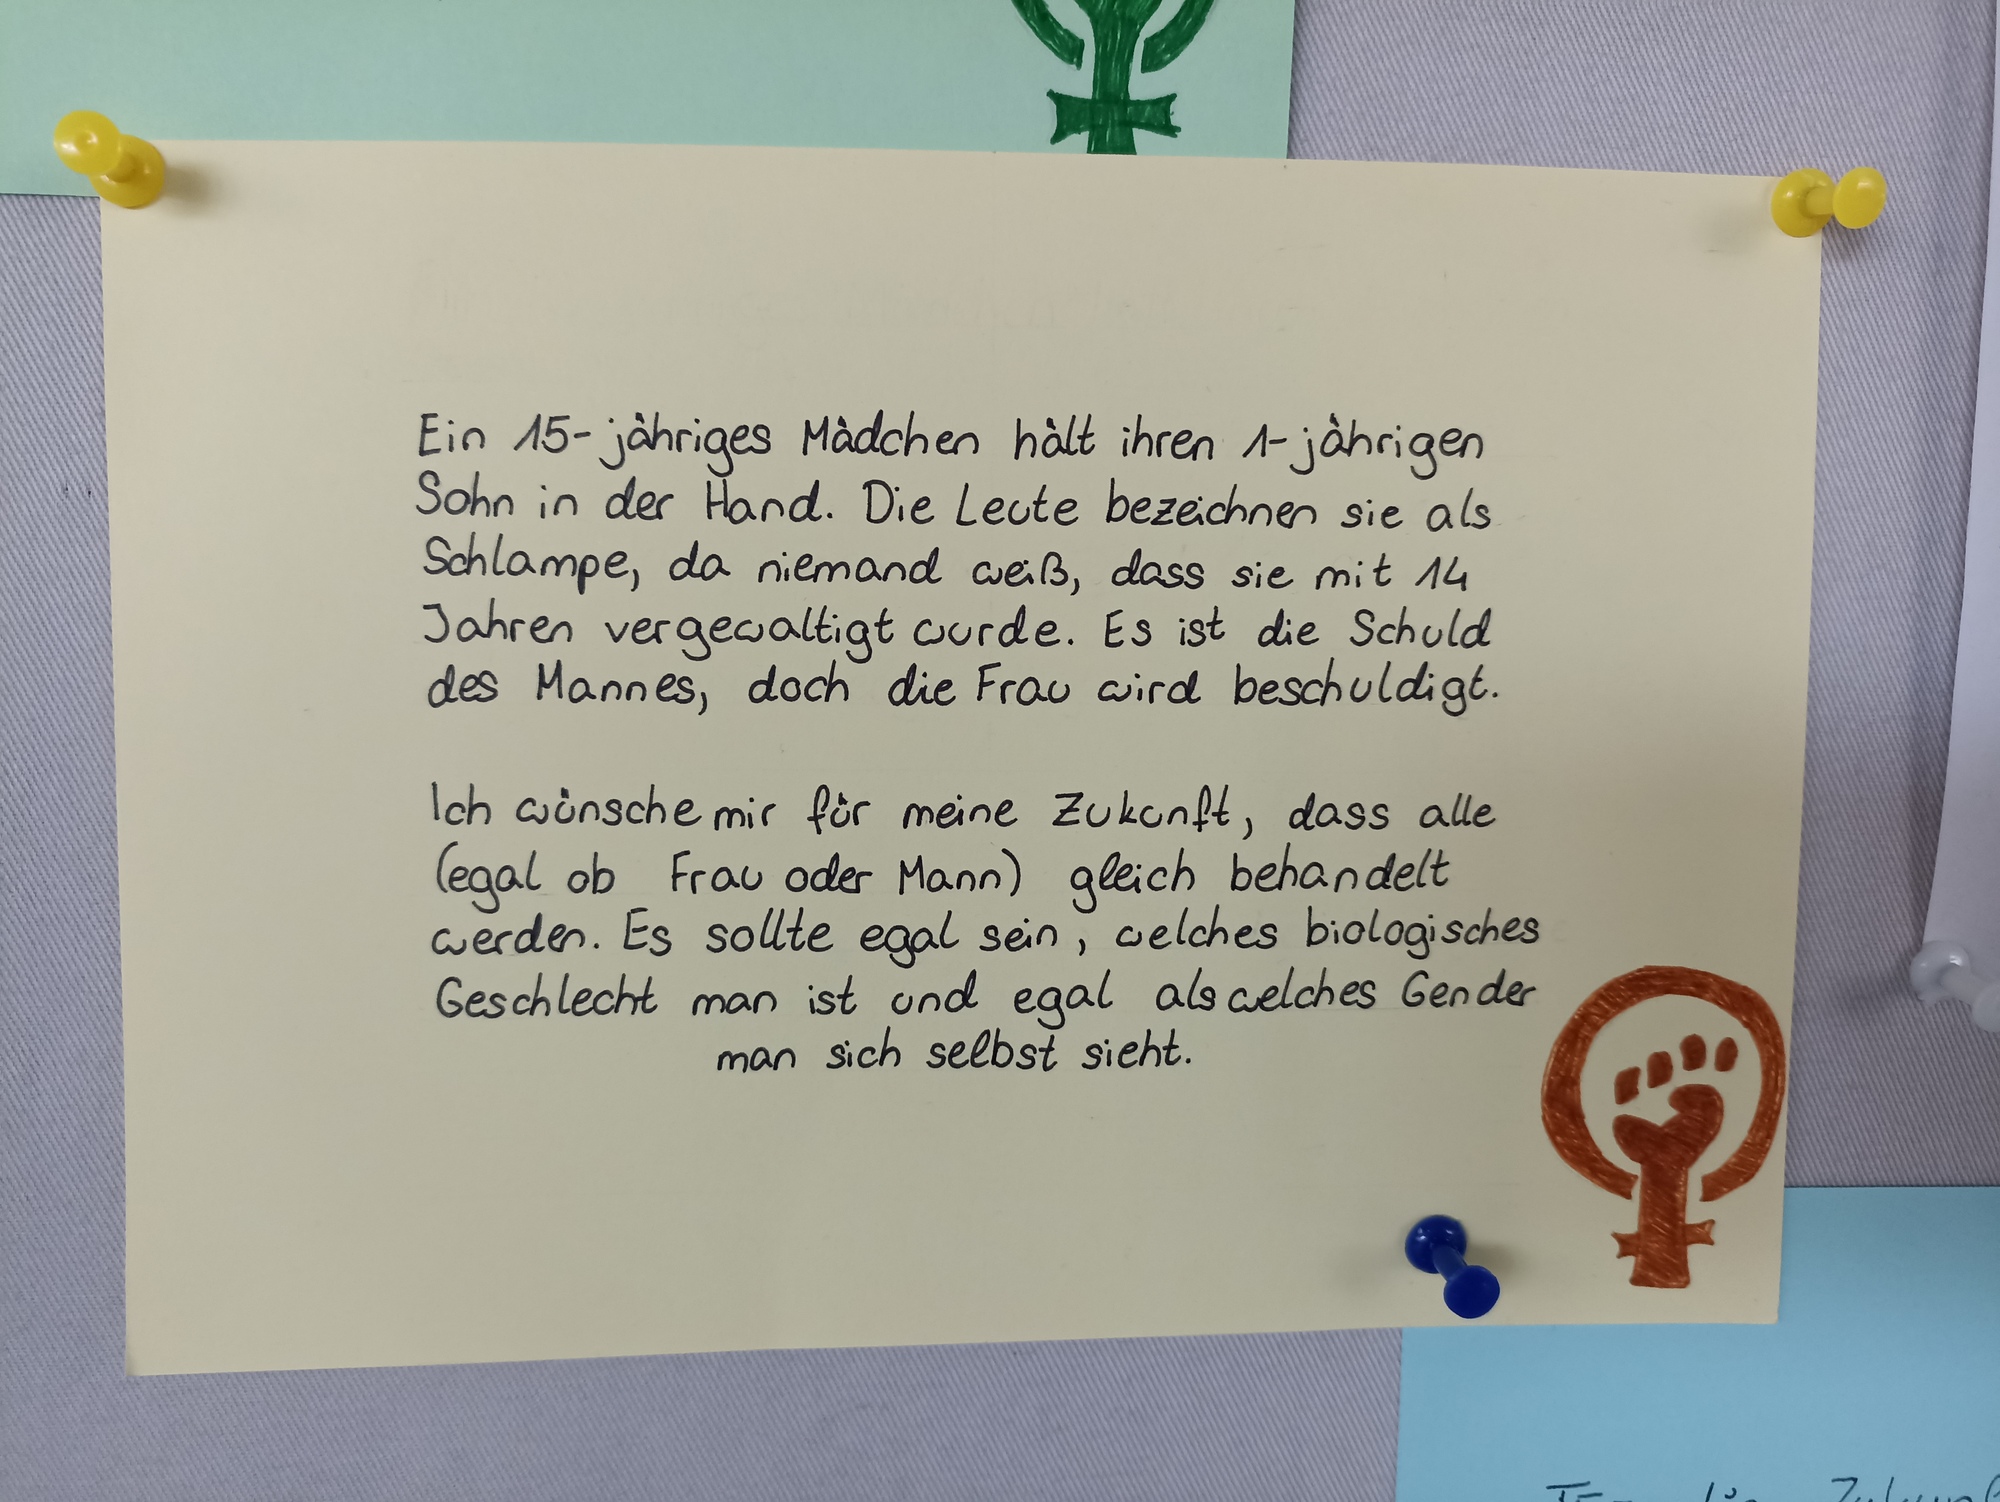 Ein 15-jähriges Mädchen hält ihren 1-jährigen
Sohn in der Hand. Die Leute bezeichnen sie als
Schlampe, da niemand weiß, dass sie mit 14
Jahren vergewaltigt wurde. Es ist die Schuld
des Mannes, doch die Frau wird beschuldigt.
Ich wünsche mir für meine Zukunft, dass alle
(egal ob Frau oder Mann) gleich behandelt
werden. Es sollte egal sein, welches biologisches
Geschlecht man ist und egal als welches Gender
man sich selbst sieht.